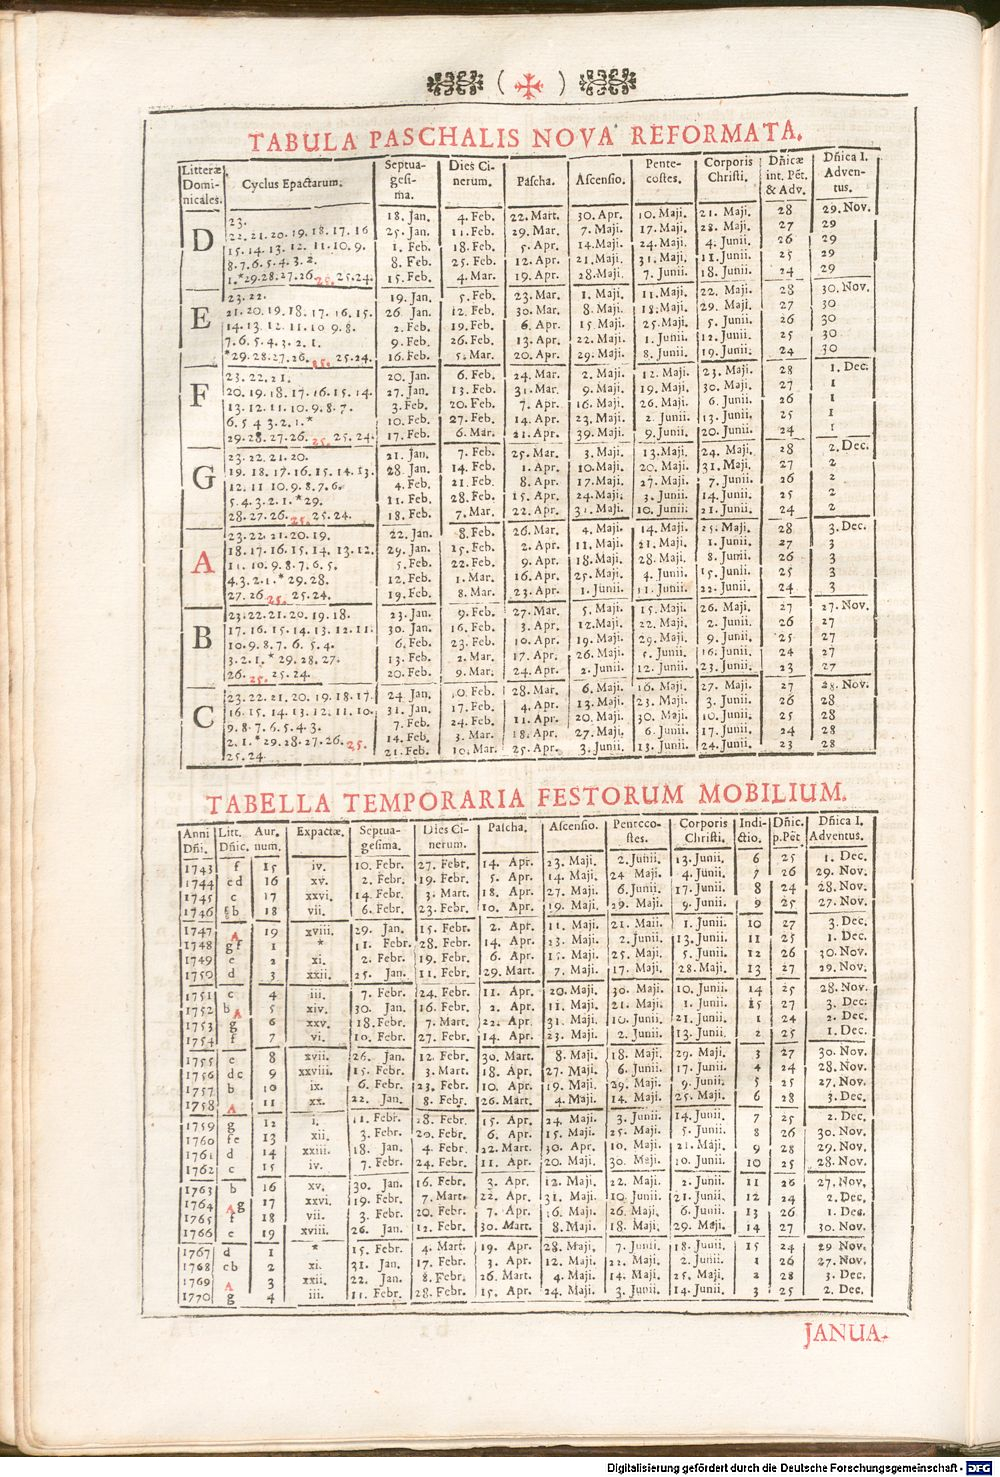 TABULA PASCHALIS NOVA REFORMATA.
Litteræ Dominicales. Cyclus Epactarum. Septuagesima. Dies Cinerum. Pascha. Ascensio. Pentecostes. Corporis Christi. Dñicæ int. Pẽt. & Adv. Dñica I. Adventus.
D 23. 18. Jan. 4. Feb. 22. Mart. 30. Apr. 10. Maji. 21. Maji. 28 29. Nov.
22. 21. 20. 19. 18. 17. 16 25. Jan. 11. Feb. 29. Mar. 7. Maji. 17. Maji. 28. Maji. 27 29
15. 14. 13. 12. 11. 10. 9. 1. Feb. 18. Feb. 5. Apr. 14. Maji. 24. Maji. 4. Junii. 26 29
8. 7. 6. 5. 4. 3. 2. 8. Feb. 25. Feb. 12. Apr. 21. Maji. 31. Maji. 11. Junii. 25 29
1. * 29. 28. 27. 26. 25. 25. 24. 15. Feb. 4. Mar. 19. Apr. 28. Maji. 7. Junii. 18. Junii. 24 29
E 23. 22. 19. Jan. 5. Feb. 23. Mar. 1. Maji. 11. Maji. 22. Maji. 28 30. Nov.
21. 20. 19. 18. 17. 16. 15. 26. Jan. 12. Feb. 30. Mar. 8. Maji. 18. Maji. 29. Maji. 27 30
14. 13. 12. 11. 10 9. 8. 2. Feb. 19. Feb. 6. Apr. 15 Maji. 25. Maji. 5. Junii. 26 30
7. 6. 5. 4. 3. 2. 1. 9. Feb. 26. Feb. 13. Apr. 22. Maji. 1. Junii. 12. Junii. 25 30
* 29. 28. 27. 26. 25. 25. 24. 16. Feb. 5. Mar. 20. Apr. 29. Maji. 8. Junii. 19. Junii. 24 30
F 23. 22. 21. 20. Jan. 6. Feb. 24. Mar. 2. Maji. 12. Maji. 23. Maji. 28 1. Dec.
20. 19. 18. 17. 16. 15. 14. 27. Jan. 13. Feb. 31. Mar. 9. Maji. 19. Maji. 30. Maji. 27 1
13. 12. 11. 10. 9. 8. 7. 3. Feb. 20. Feb. 7. Apr. 16. Maji. 26. Maji. 6. Junii. 26 1
6. 5 4 3. 2. 1. * 10. Feb. 27. Feb. 14. Apr. 23. Maji. 2. Junii. 13. Junii. 25 1
29. 28. 27. 26. 25. 25. 24. 17. Feb. 6. Mar. 21. Apr. 39. Maji. 9. Junii. 20. Junii. 24 1
G 23. 22. 21. 20. 21. Jan. 7. Feb. 25. Mar. 3. Maji. 13. Maji. 24. Maji. 28 2. Dec.
19. 18. 17. 16. 15. 14. 13. 28. Jan. 14. Feb. 1. Apr. 10. Maji. 20. Maji. 31. Maji. 27 2
12. 11 10. 9. 8. 7. 6. 4. Feb. 21. Feb. 8. Apr. 17. Maji. 27. Maji. 7. Junii. 26 2
5. 4. 3. 2. 1. * 29. 11. Feb. 28. Feb. 15. Apr. 24. Maji. 3. Junii. 14. Junii. 25 2
28. 27. 26. 25. 25. 24. 18. Feb. 7. Mar. 22. Apr. 31. Maji. 10. Junii. 21. Junii. 24 2
A 23. 22. 21. 20. 19. 22. Jan. 8. Feb. 26. Mar. 4. Maji. 14. Maji. 25. Maji. 28 3. Dec.
18. 17. 16. 15. 14. 13. 12. 29. Jan. 15. Feb. 2. Apr. 11. Maji. 21. Maji. 1. Junii. 27 3
11. 10. 9. 8. 7. 6. 5. 5. Feb. 22. Feb. 9. Apr. 18. Maji. 28. Maji. 8. Junii. 26 3
4. 3. 2. 1. * 29. 28. 12. Feb. 1. Mar. 16. Apr. 25. Maji. 4. Junii. 15. Junii. 25 3
27. 26 25. 25. 24. 19. Feb. 8. Mar. 23. Apr. 1. Junii. 11. Junii. 22. Junii. 24 3
B 23. 22. 21. 20. 19. 18. 23. Jan. 9. Feb. 27. Mar. 5. Maji. 15. Maji. 26. Maji. 27 27. Nov.
17. 16. 15. 14. 13. 12. 11. 30. Jan. 16. Feb. 3. Apr. 12. Maji. 22. Maji. 2. Junii. 26 27
10. 9. 8. 7. 6. 5. 4. 6. Feb. 23. Feb. 10. Apr. 19. Maji. 29. Maji. 9. Junii. 25 27
3. 2. 1. * 29. 28. 27. 13. Feb. 2. Mar. 17. Apr. 26. Maji. 5. Junii. 16. Junii. 24 27
26. 25. 25. 24. 20. Feb. 9. Mar. 24. Apr. 2. Junii. 12. Junii. 23. Junii. 23 27
C 23. 22. 21. 20. 19. 18. 17. 24 Jan. 10. Feb. 28. Mar. 6. Maji. 16. Maji. 27. Maji. 27 28. Nov.
16. 15. 14. 13. 12. 11. 10. 31. Jan. 17. Feb. 4. Apr. 13. Maji. 23. Maji. 3. Junii. 26 28
9. 8. 7. 6. 5. 4. 3. 7. Feb. 24. Feb. 11. Apr. 20. Maji. 30. Maji. 10. Junii. 25 28
2. 1. * 29. 28. 27. 26. 25. 14. Feb. 3. Mar. 18. Apr. 27. Maji. 6. Junii. 17. Junii. 24 28
25. 24. 21. Feb. 10. Mar. 25. Apr. 3. Junii. 13. Junii. 24. Junii. 23 28
TABELLA TEMPORARIA FESTORUM MOBILIUM.
Anni Dñi. Litt. Dñic. Aur. num. Expactæ. Septuagesima. Dies Cinerum. Pascha. Ascensio. Pentecostes. Corporis Christi. Indictio. Dñic. p. Pẽt Dñica I. Adventus.
1743 f 15 iv. 10. Febr. 27. Febr. 14. Apr. 23. Maji. 2. Junii. 13. Junii. 6 25 1. Dec.
1744 ed 16 xv. 2. Febr. 19. Febr. 5. Apr. 14. Maji. 24 Maji. 4. Junii. 7 26 29. Nov.
1745 c 17 xxvi. 14. Febr. 3. Mart. 18. Apr. 27. Maji. 6. Junii. 17. Junii. 8 24 28. Nov.
1746 b 18 vii. 6. Febr. 23. Febr. 10. Apr. 19. Maji. 29. Maji. 9. Junii. 9 25 27. Nov.
1747 A 19 xviii. 29. Jan. 15. Febr. 2. Apr. 11. Maji. 21. Maii. 1. Junii. 10 27 3. Dec.
1748 gf 1 * 11. Febr. 28. Febr. 14. Apr. 23. Maji. 2. Junii. 13. Junii. 11 25 1. Dec.
1749 e 2 xi. 2. Febr. 19. Febr. 6. Apr. 15. Maji. 25. Maji. 5. Junii. 12 26 30. Nov.
1750 d 3 xxii. 25. Jan. 11. Febr. 29. Mart. 7. Maji. 17. Maji. 28. Maji. 13 27 29. Nov.
1751 c 4 iii. 7. Febr. 24. Febr. 11. Apr. 20. Maji. 30. Maji. 10. Junii. 14 25 28. Nov.
1752 b A 5 xiv. 30. Jan. 16. Febr. 2. Apr. 11. Maji. 21. Maji. 1. Junii. 15 27 3. Dec.
1753 g 6 xxv. 18. Febr. 7. Mart. 22. Apr. 31. Maji. 10. Junii. 21. Junii. 1 24 2. Dec.
1754 f 7 vi. 10. Febr. 27. Febr. 14. Apr. 23. Maji. 2. Junii. 13. Junii. 2 25 1. Dec.
1755 e 8 xvii. 26. Jan. 12. Febr. 30. Mart. 8. Maji. 18. Maji. 29. Maji. 3 27 30. Nov.
1756 dc 9 xxviii. 15. Febr. 3. Mart. 18. Apr. 27. Maji. 6. Junii. 17. Junii. 4 24 28. Nov.
1757 b 10 ix. 6. Febr. 23. Febr. 10. Apr. 19. Maji. 29. Maji. 9. Junii. 5 25 27. Nov.
1758 A 11 xx. 22. Jan. 8. Febr. 26. Mart. 4. Maji. 14. Maji. 25. Maji. 6 28 3. Dec.
1759 g 12 i. 11. Febr. 28. Febr. 15. Apr. 24. Maji. 3. Junii. 14. Junii. 7 25 2. Dec.
1760 fe 13 xii. 3. Febr. 20. Febr. 6. Apr. 15. Maji. 25. Maji. 5. Junii. 8 26 30. Nov.
1761 d 14 xxiii. 18. Jan. 4. Febr. 22. Mart. 30. Apr. 10. Maji. 21. Maji. 9 28 29. Nov.
1762 c 15 iv. 7. Febr. 24. Febr. 11. Apr. 20. Maji. 30. Maji. 10. Junii. 10 25 28. Nov.
1763 b 16 xv. 30. Jan. 16. Febr. 3. Apr. 12. Maji. 22. Maji. 2. Junii. 11 26 27. Nov.
1764 Ag 17 xxvi. 19. Febr. 7. Mart. 22. Apr. 31. Maji. 10. Junii. 21. Junii. 12 24 2. Dec.
1765 f 18 vii. 3. Febr. 20. Febr. 7. Apr. 16. Maji. 26. Maji. 6. Junii. 13 26 1. Dec.
1766 e 19 xviii. 26. Jan. 12. Febr. 30. Mart. 8. Maji. 18. Maji. 29. Maji. 14 27 30. Nov.
1767 d 1 * 15. Febr. 4. Mart. 19. Apr. 28. Maji. 7. Junii. 18. Junii. 15 24 29 Nov.
1768 cb 2 xi. 31. Jan. 17. Febr. 3. Apr. 12. Maji. 22. Maji. 2. Junii. 1 26 27. Nov.
1769 A 3 xxii. 22. Jan. 8. Febr. 26. Mart. 4. Maji. 14. Maji. 25. Maji. 2 28 3. Dec.
1770 g 4 iii. 11. Febr. 28. Febr. 15. Apr. 24. Maji. 3. Junii. 14. Junii. 3 25 2. Dec.
JANUA-
Digitalisierung gefördert durch die Deutsche Forschungsgemeinschaft - DFG